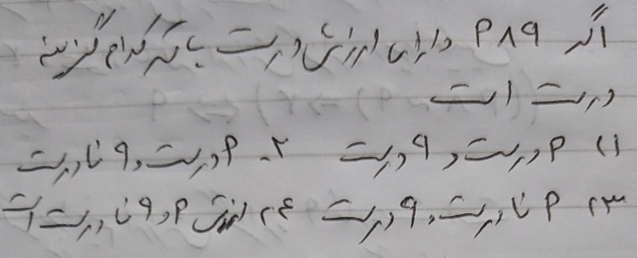 اگر P∧q دارای ارزش درست باشد کدام گزینه
درست است
۱) P درست و q درست ۲. P درست و q نادرست
۳) P نادرست و q درست ۴) ارزش P و q نادرست است